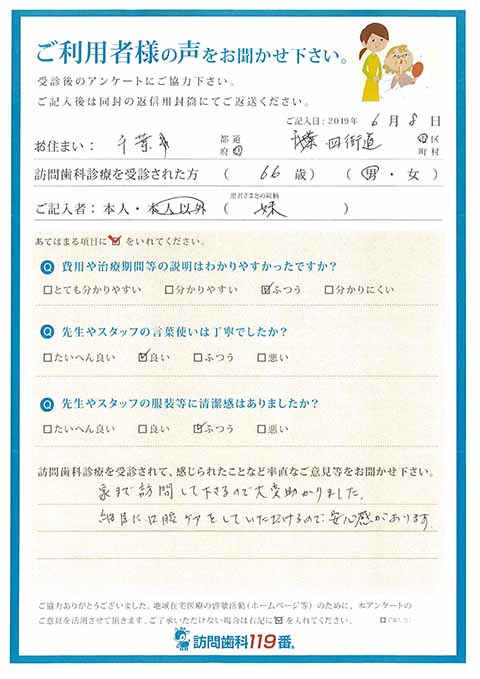 ご利用者様の声をお聞かせ下さい。
受診後のアンケートにご協力下さい。
ご記入後は同封の返信用封筒にてご返送ください。
ご記入日：2019年 6月 8日
お住まい： 千葉 都道府県 四街道 市区町村
訪問歯科診療を受診された方 （ 66 歳） （ 男・女 ）
ご記入者：本人・本人以外 （ 患者さまとの続柄 妹 ）
あてはまる項目に☑をいれてください。
Q 費用や治療期間等の説明はわかりやすかったですか？
□とても分かりやすい □分かりやすい ☑ふつう □分かりにくい
Q 先生やスタッフの言葉使いは丁寧でしたか？
□たいへん良い ☑良い □ふつう □悪い
Q 先生やスタッフの服装等に清潔感はありましたか？
□たいへん良い □良い ☑ふつう □悪い
訪問歯科診療を受診されて、感じられたことなど率直なご意見等をお聞かせ下さい。
家まで訪問して下さるので大変助かりました。
細目に口腔ケアをしていただけるので安心感があります。
ご協力ありがとうございました。地域在宅医療の啓蒙活動（ホームページ等）のために、本アンケートの
ご意見を活用させて頂きます。ご了承いただけない場合は右記に☑を入れてください。 □了承しない
訪問歯科119番®